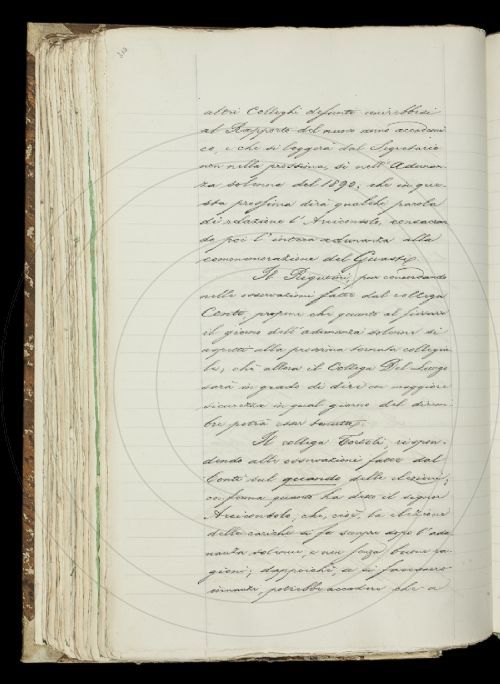 altri Colleghi defunti unirebbesi
al Rapporto del nuovo anno accademi-
co, e che si leggerà dal Segretario
non nella prossima, sì nell'Adunan-
za solenne del 1890; che in que-
sta prossima dirà qualche parola
di relazione l'Arciconsolo, consacran-
do poi l'intera adunanza alla
commemorazione del Guasti.
Il Rigutini, pur concordando
nelle osservazioni fatte dal collega
Conti, propone che quanto al fissare
il giorno dell'adunanza solenne si
aspetti alla prossima tornata collegia-
le, chè allora il Collega Del Lungo
sarà in grado di dire con maggiore
sicurezza in qual giorno del dicem-
bre potrà esser tenuta.
Il collega Tortoli, rispon-
dendo alle osservazioni fatte dal
Conti sul quando delle elezioni,
conferma quanto ha detto il signor
Arciconsolo, che, cioè, la elezione
delle cariche si fa sempre dopo l'adu-
nanza solenne, e non senza buone ra-
gioni; dappoichè, se si facessero
innanzi, potrebbe accadere che a